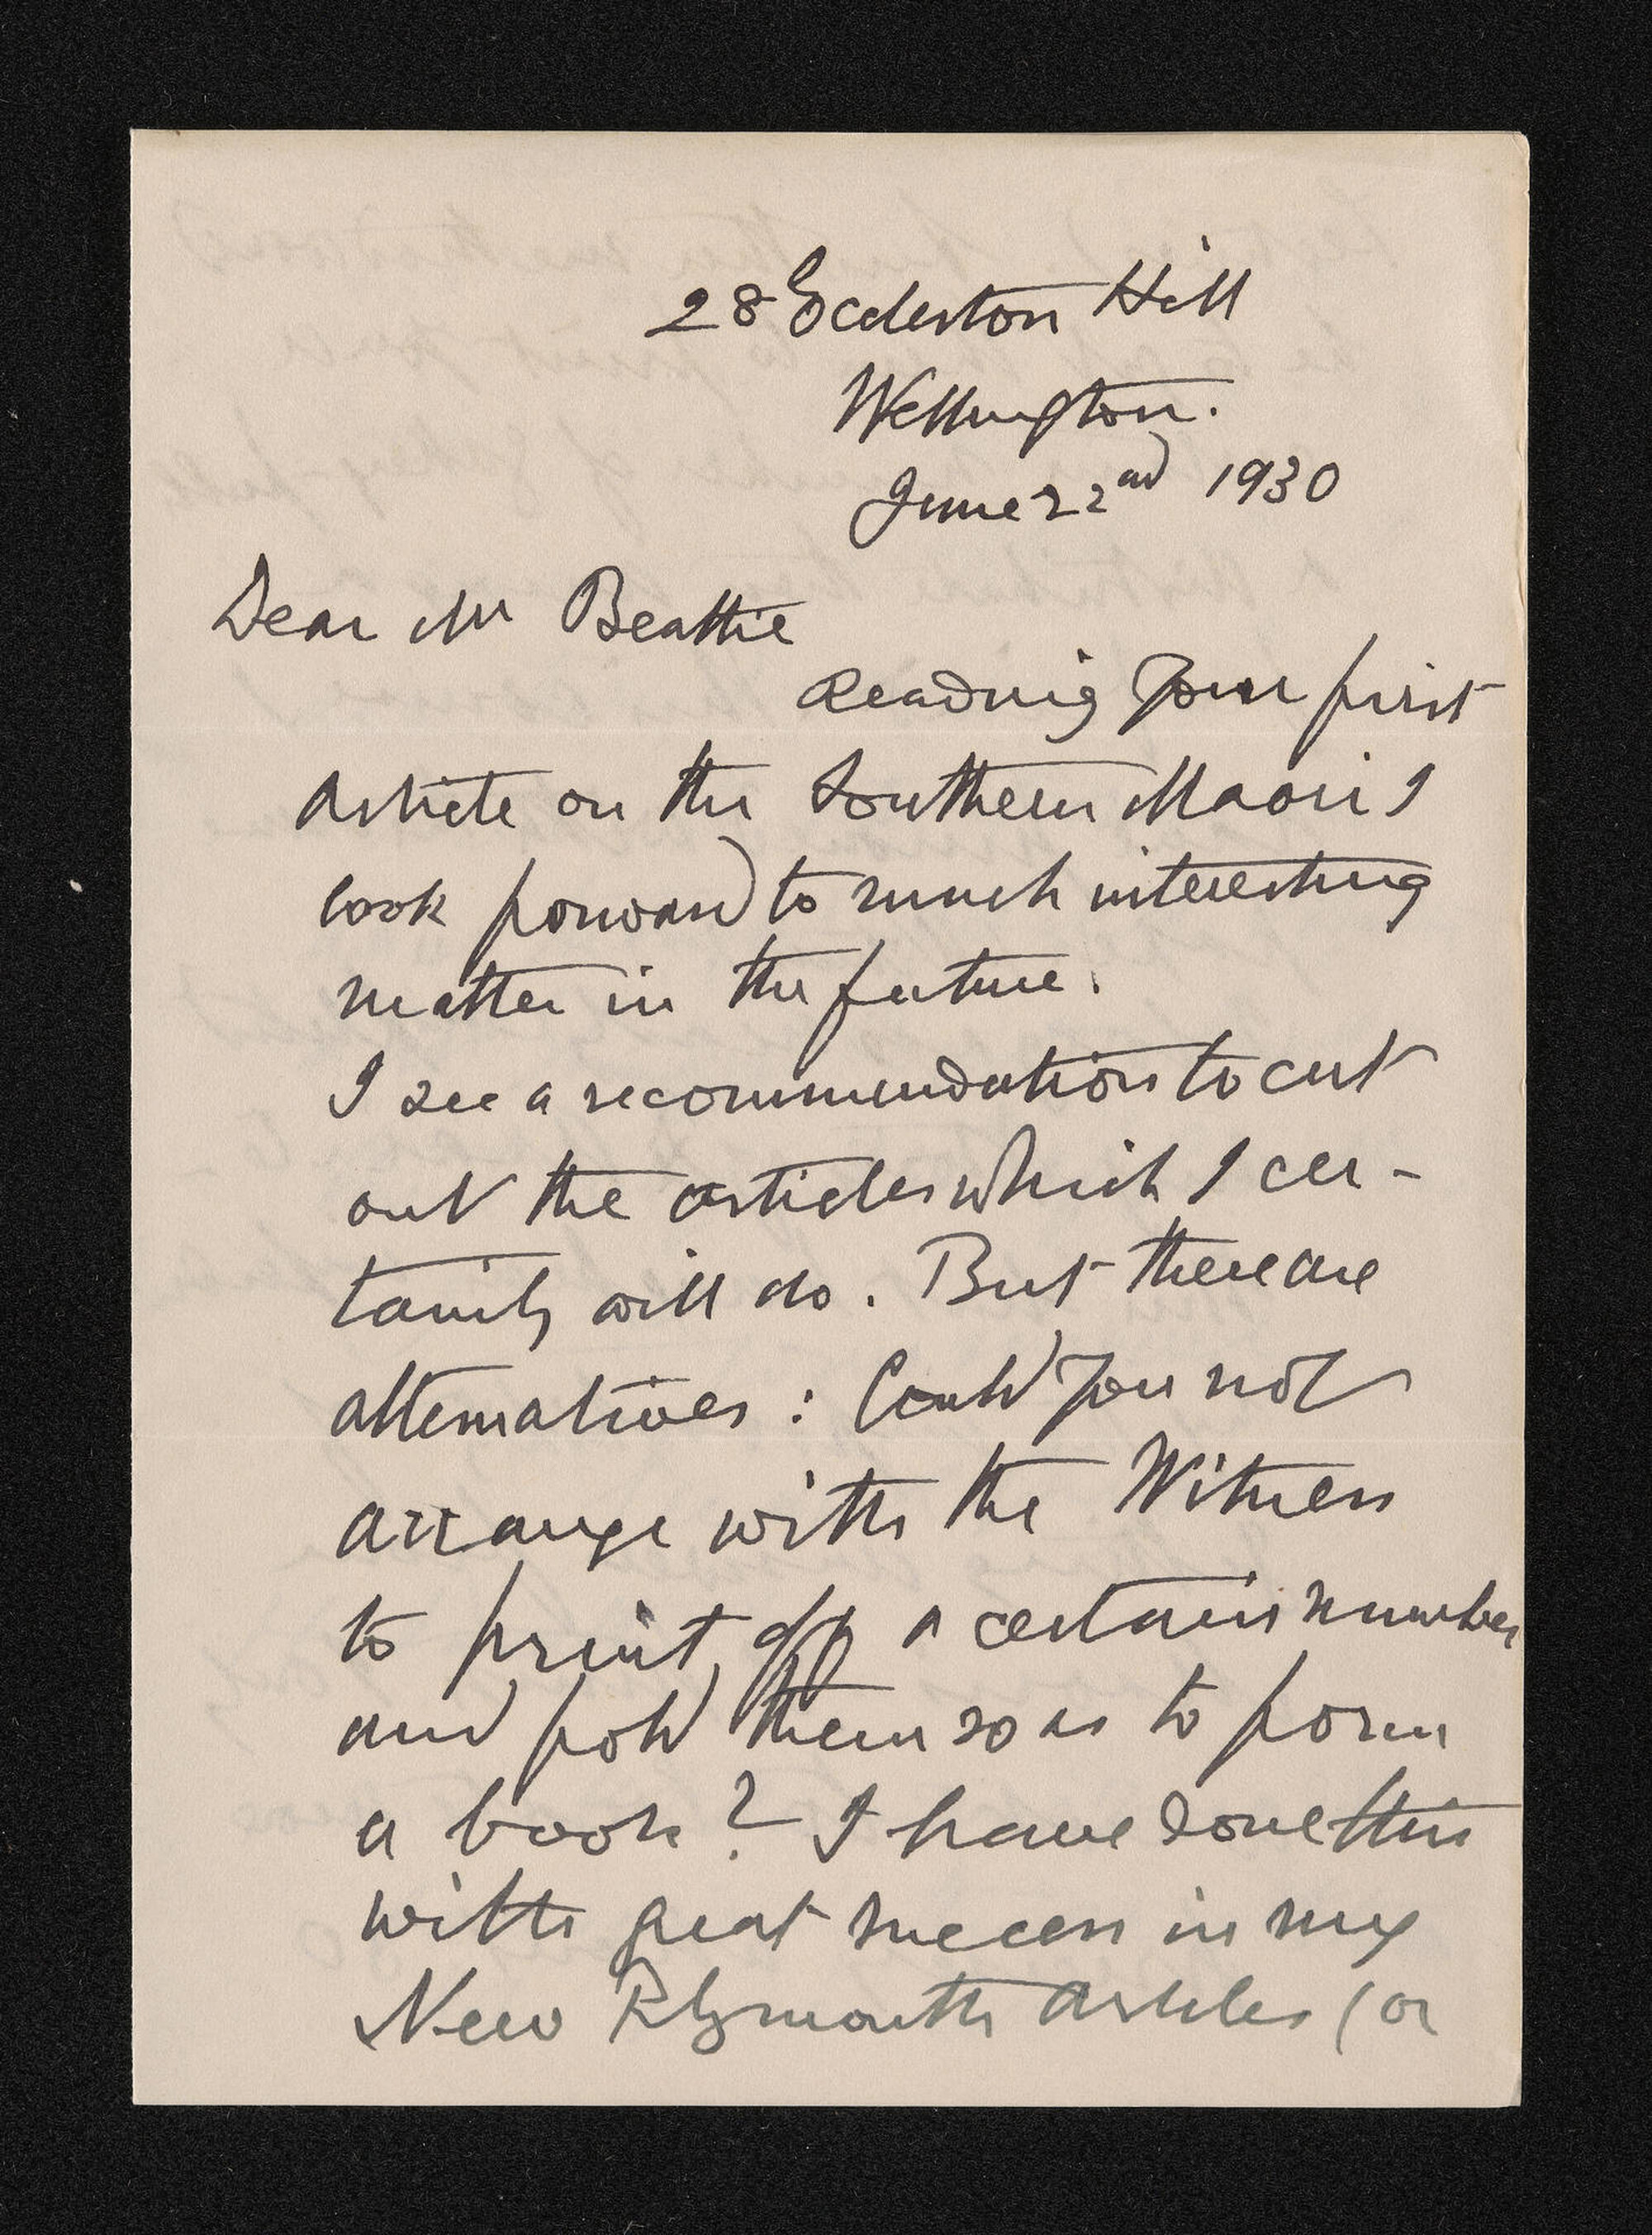 28 Eccleston Hill
Wellington.
June 22nd 1930
Dear Mr Beattie
Reading your first
article on the Southern Maori I
look forward to much interesting
matter in the future.
I see a recommendation to cut
out the articles which I cer-
tainly will do. But there are
alternatives : Could you not
arrange with the Witness
to print off a certain number
and fold them so as to form
a book? I have done this
with great success in my
New Plymouth Articles (or